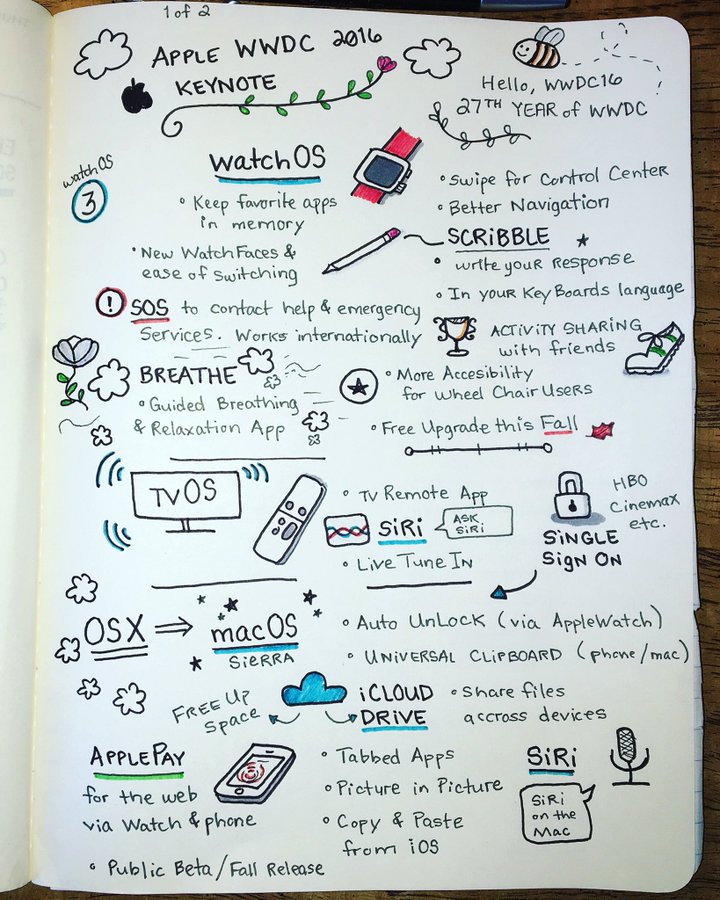 1 of 2
APPLE WWDC 2016
KEYNOTE
Hello, WWDC16
27TH YEAR of WWDC
watchOS
3
watchOS
• Keep favorite apps
in memory
• New WatchFaces &
ease of switching
• Swipe for Control Center
• Better Navigation
SCRIBBLE
• write your Response
• In your KeyBoards language
! SOS to contact help & emergency
Services. Works internationally
ACTIVITY SHARING
with friends
BREATHE
• Guided Breathing
& Relaxation App
• More Accesibility
for Wheel Chair Users
• Free Upgrade this Fall
TVOS
• TV Remote App
SiRi
ASK
SiRi
• Live Tune In
SiNGLE
Sign On
HBO
Cinemax
etc.
OSX ⇒ macOS
SiERRA
• Auto UnLock (via AppleWatch)
• UNIVERSAL CLIPBOARD (phone/mac)
FREE Up
Space
iCLOUD
DRIVE
• Share files
accross devices
APPLEPAY
for the web
via Watch & phone
• Public Beta/Fall Release
• Tabbed Apps
• Picture in Picture
• Copy & Paste
from iOS
SiRi
SiRi
on the
Mac